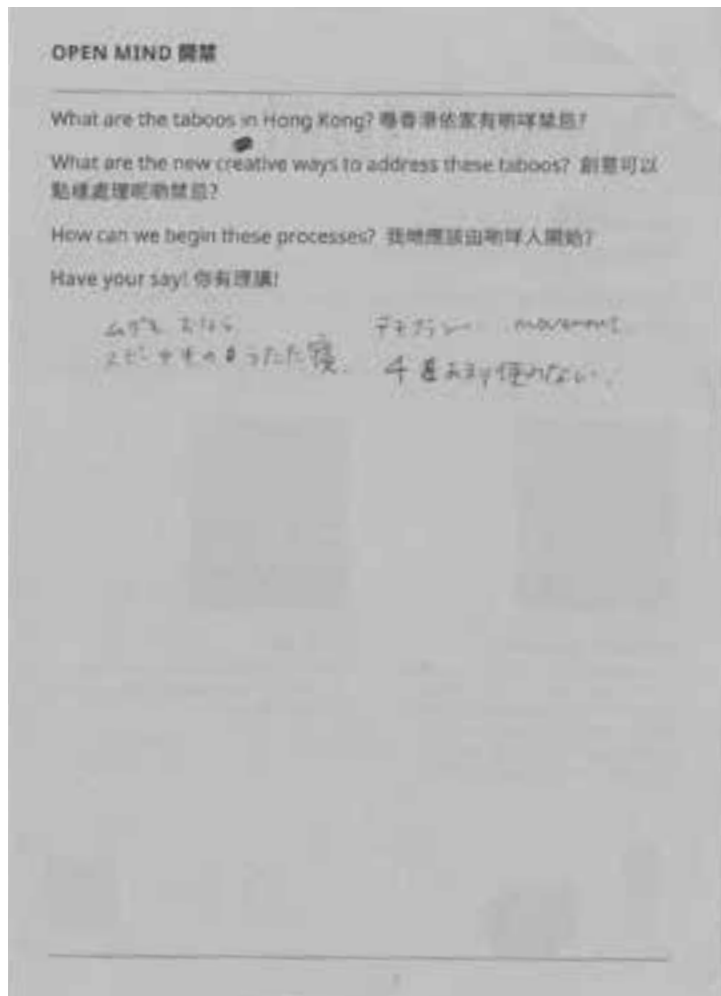 OPEN MIND 開禁
What are the taboos in Hong Kong? 喺香港依家有啲咩禁忌?
What are the new creative ways to address these taboos? 創意可以
點樣處理呢啲禁忌?
How can we begin these processes? 我哋應該由啲咩人開始?
Have your say! 你有理講!
movement
うたた寝
使わない